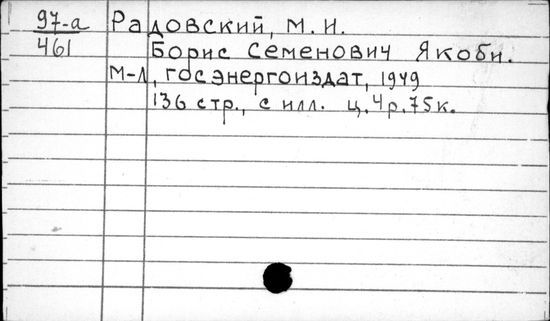 97-а Радовский, М. И.
461 Борис Семенович Якоби.
М-Л, госэнергоиздат, 1949
136 стр., с илл. ц. 4 р. 75 к.